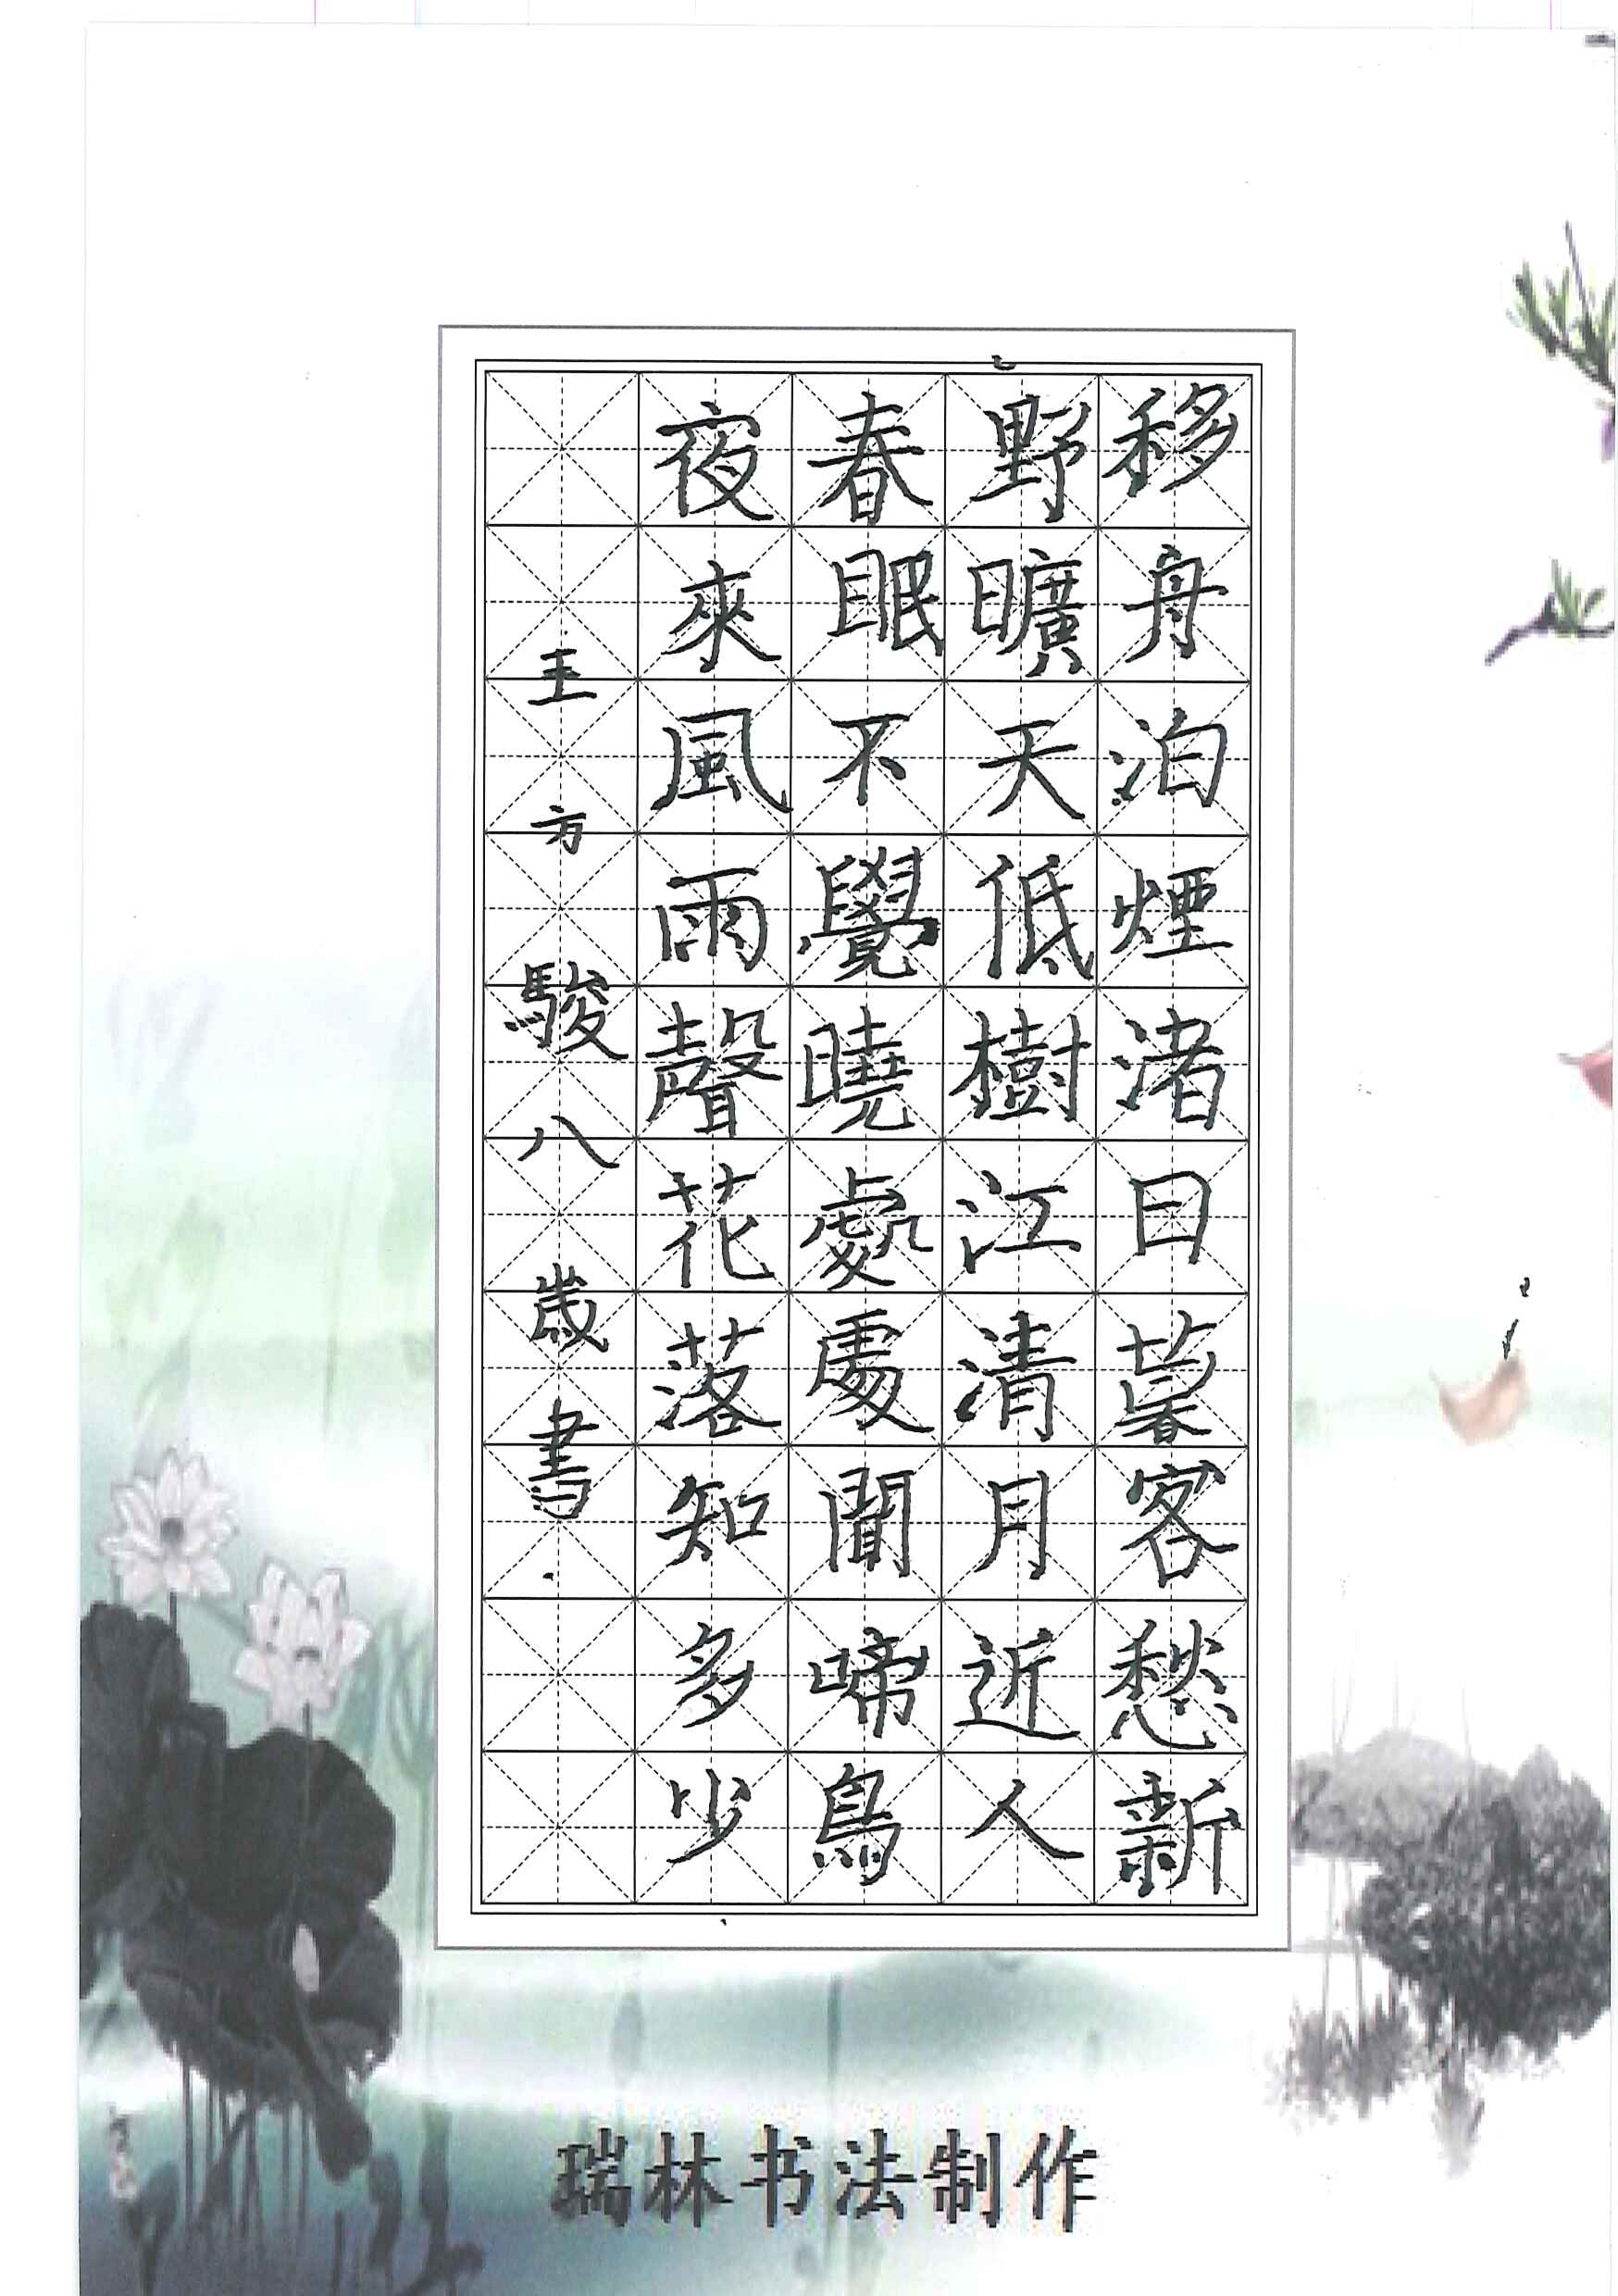 移舟泊煙渚日暮客愁新
野曠天低樹江清月近人
春眠不覺曉處處聞啼鳥
夜來風雨聲花落知多少
王方駿八歲書
瑞林书法制作